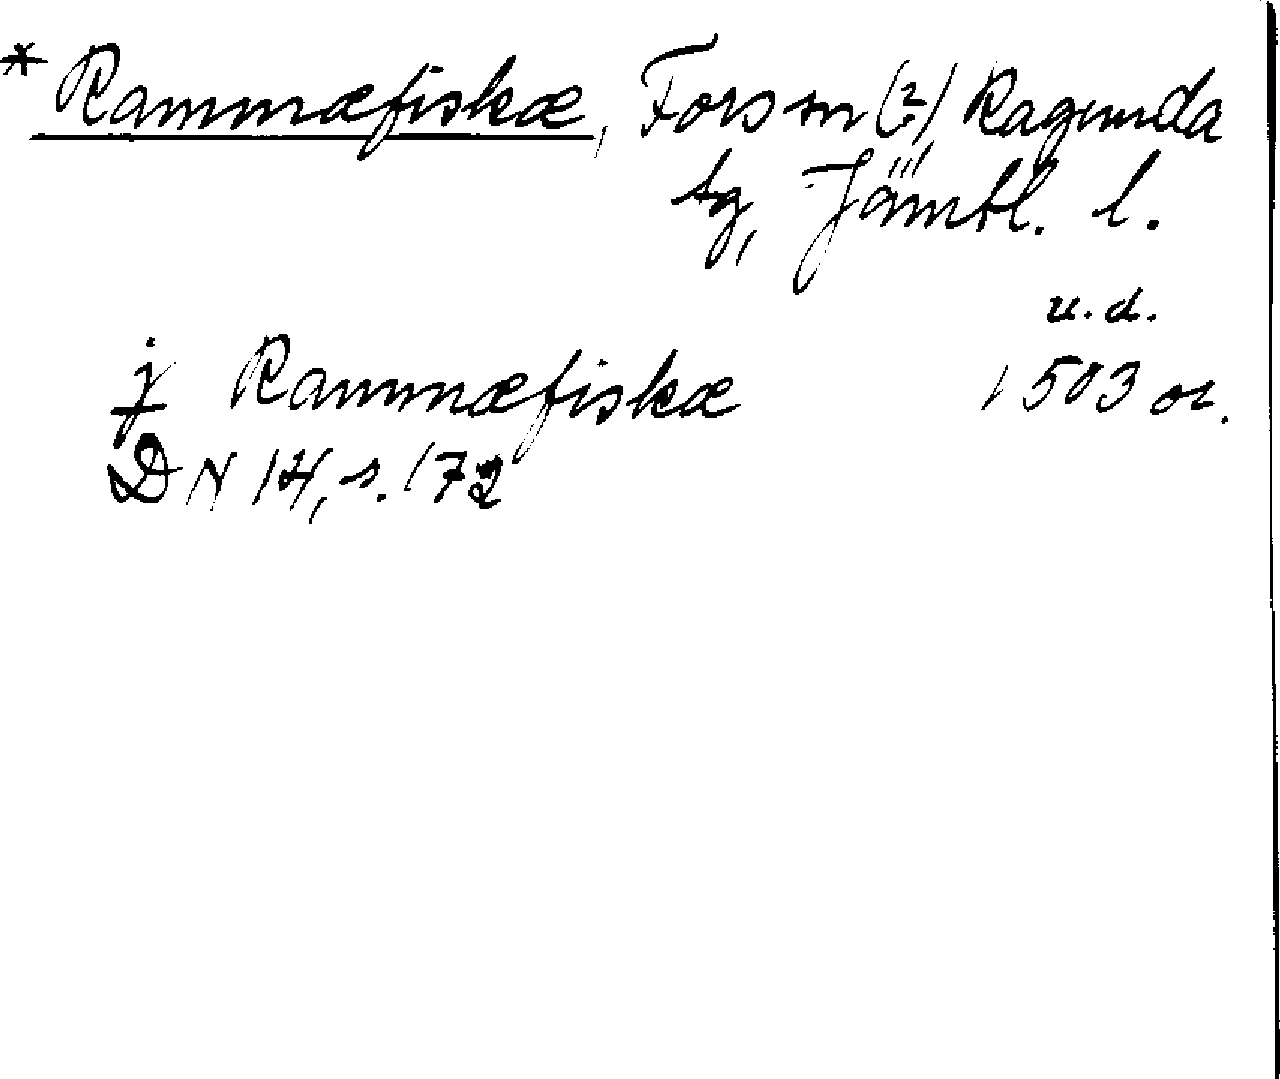 * Rammæfiskæ, Fors sn (?) Ragunda
tg, Jämtl. l.
u.d.
j Rammæfiskæ 1503 or.
DN 14, s. 172